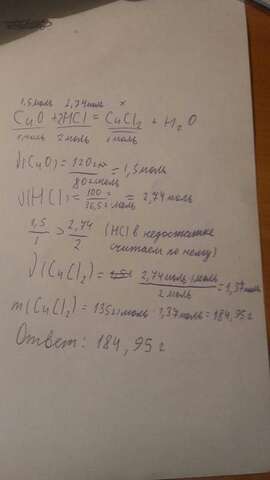 1,5моль 2,74моль x
CuO + 2HCl = CuCl2 + H2O
1моль 2моль 1моль
ν(CuO) = 120г / 80г/моль = 1,5моль
ν(HCl) = 100г / 36,5г/моль = 2,74моль
1,5/1 > 2,74/2 (HCl в недостатке
считаем по нему)
ν(CuCl2) = 2,74моль·1моль / 2моль = 1,37моль
m(CuCl2) = 135г/моль·1,37моль = 184,95г
Ответ: 184,95г